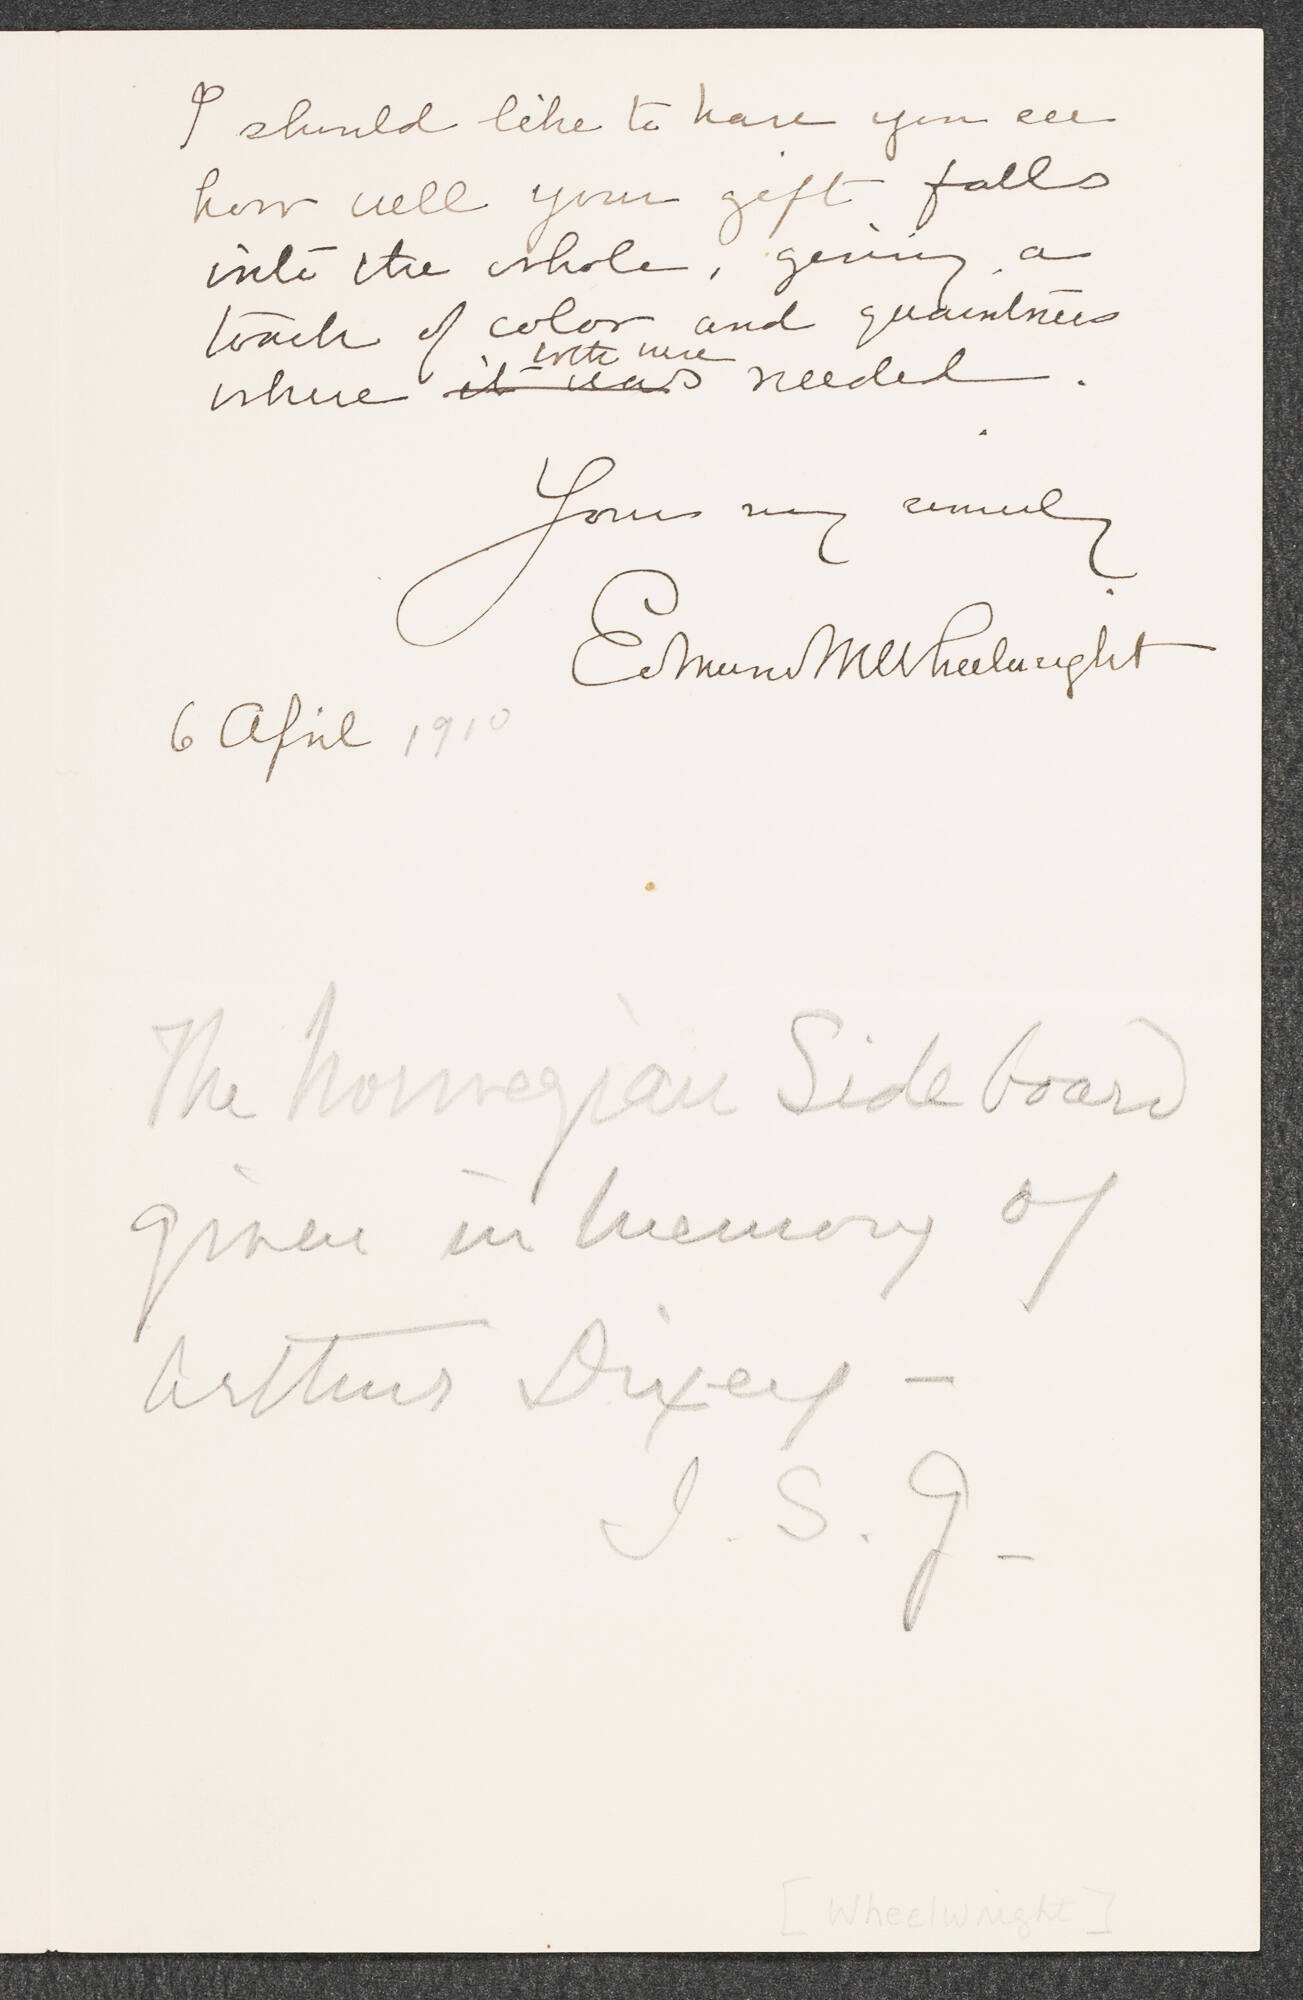 I should like to have you see
how well your gift falls
into the whole, giving a
touch of color and quaintness
both were
where it was needed.
Yours very sincerely
Edmund M Wheelwright
6 April 1910
The Norwegian Side board
given in memory of
Arthur Dixey -
I. S. G -
[Wheelwright]